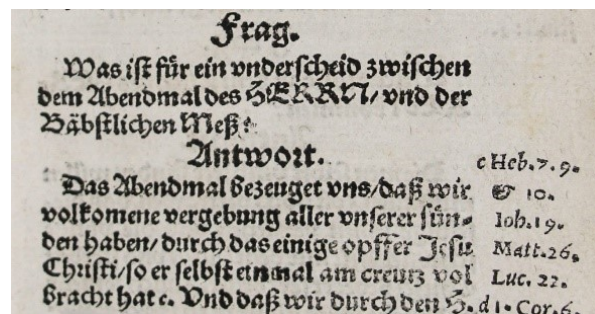 Frag.
Was ist für ein vnderscheid zwischen
dem Abendmal des HERRN/ vnd der
Bäbstlichen Meß?
Antwort.
Das Abendmal bezeuget vns/ daß wir
volkomene vergebung aller vnserer sün-
den haben/ durch das einige opffer Jesu
Christi/ so er selbst einmal am creutz vol
bracht hat c. Vnd daß wir durch den H.
c Heb. 7. 9.
& 10.
Ioh. 19.
Matt. 26.
Luc. 22.
d 1. Cor. 6.